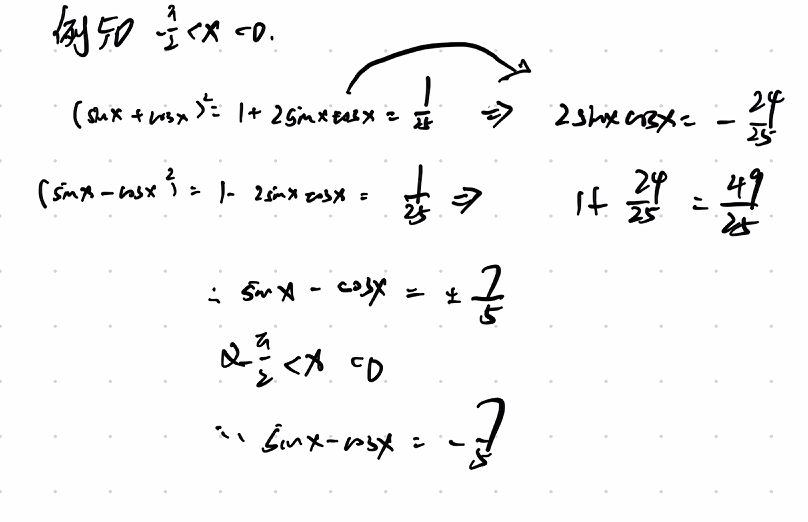 例50 -π/2 < x < 0.
(sinx + cosx)² = 1 + 2sinxcosx = 1/25 ⇒ 2sinxcosx = - 24/25
(sinx - cosx²) = 1 - 2sinxcosx = 1/25 ⇒ 1+ 24/25 = 49/25
∴ sinx - cosx = ± 7/5
又-π/2 < x < 0
∵ sinx - cosx = - 7/5